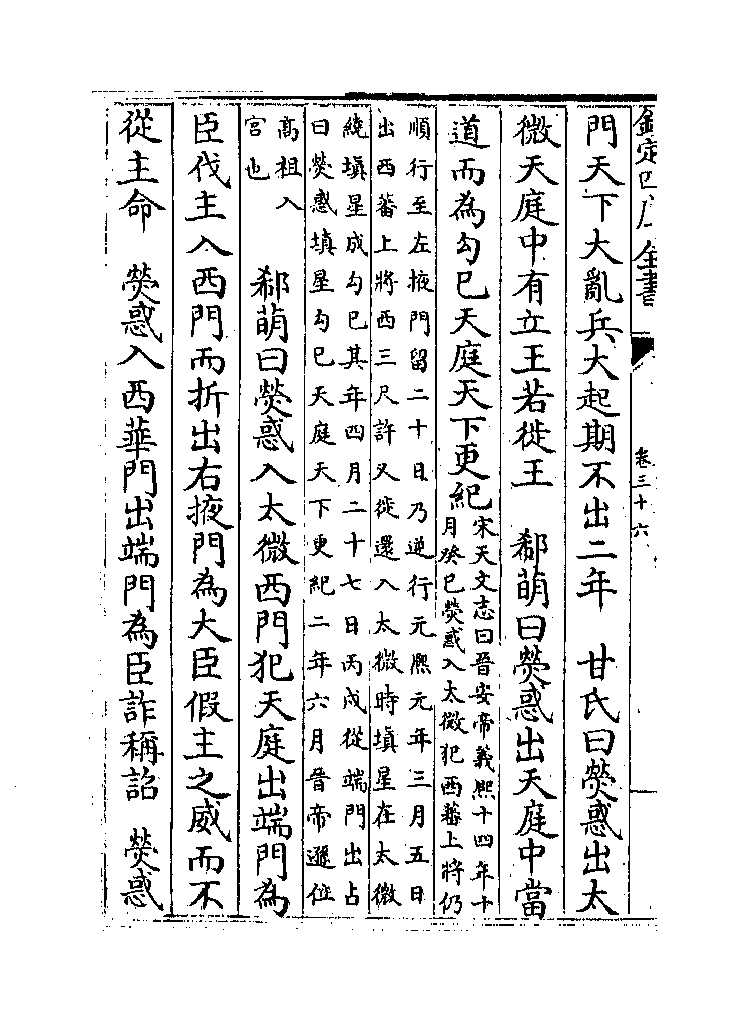 欽定四庫全書
卷三十六
門天下大亂兵大起期不出二年　甘氏曰熒惑出太
微天庭中有立王若徙王　郗萌曰熒惑出天庭中當
道而為勾巳天庭天下更紀宋天文志曰晉安帝義熙十四年十
月癸巳熒惑入太微犯西蕃上將仍
順行至左掖門留二十日乃逆行元熙元年三月五日
出西蕃上將西三尺許又從還入太微時填星在太微
繞填星成勾巳其年四月二十七日丙戌從端門出占
曰熒惑填星勾巳天庭天下更紀二年六月晉帝遜位
高祖入
宮也　郗萌曰熒惑入太微西門犯天庭出端門為
臣伐主入西門而折出右掖門為大臣假主之威而不
從主命　熒惑入西華門出端門為臣詐稱詔　熒惑